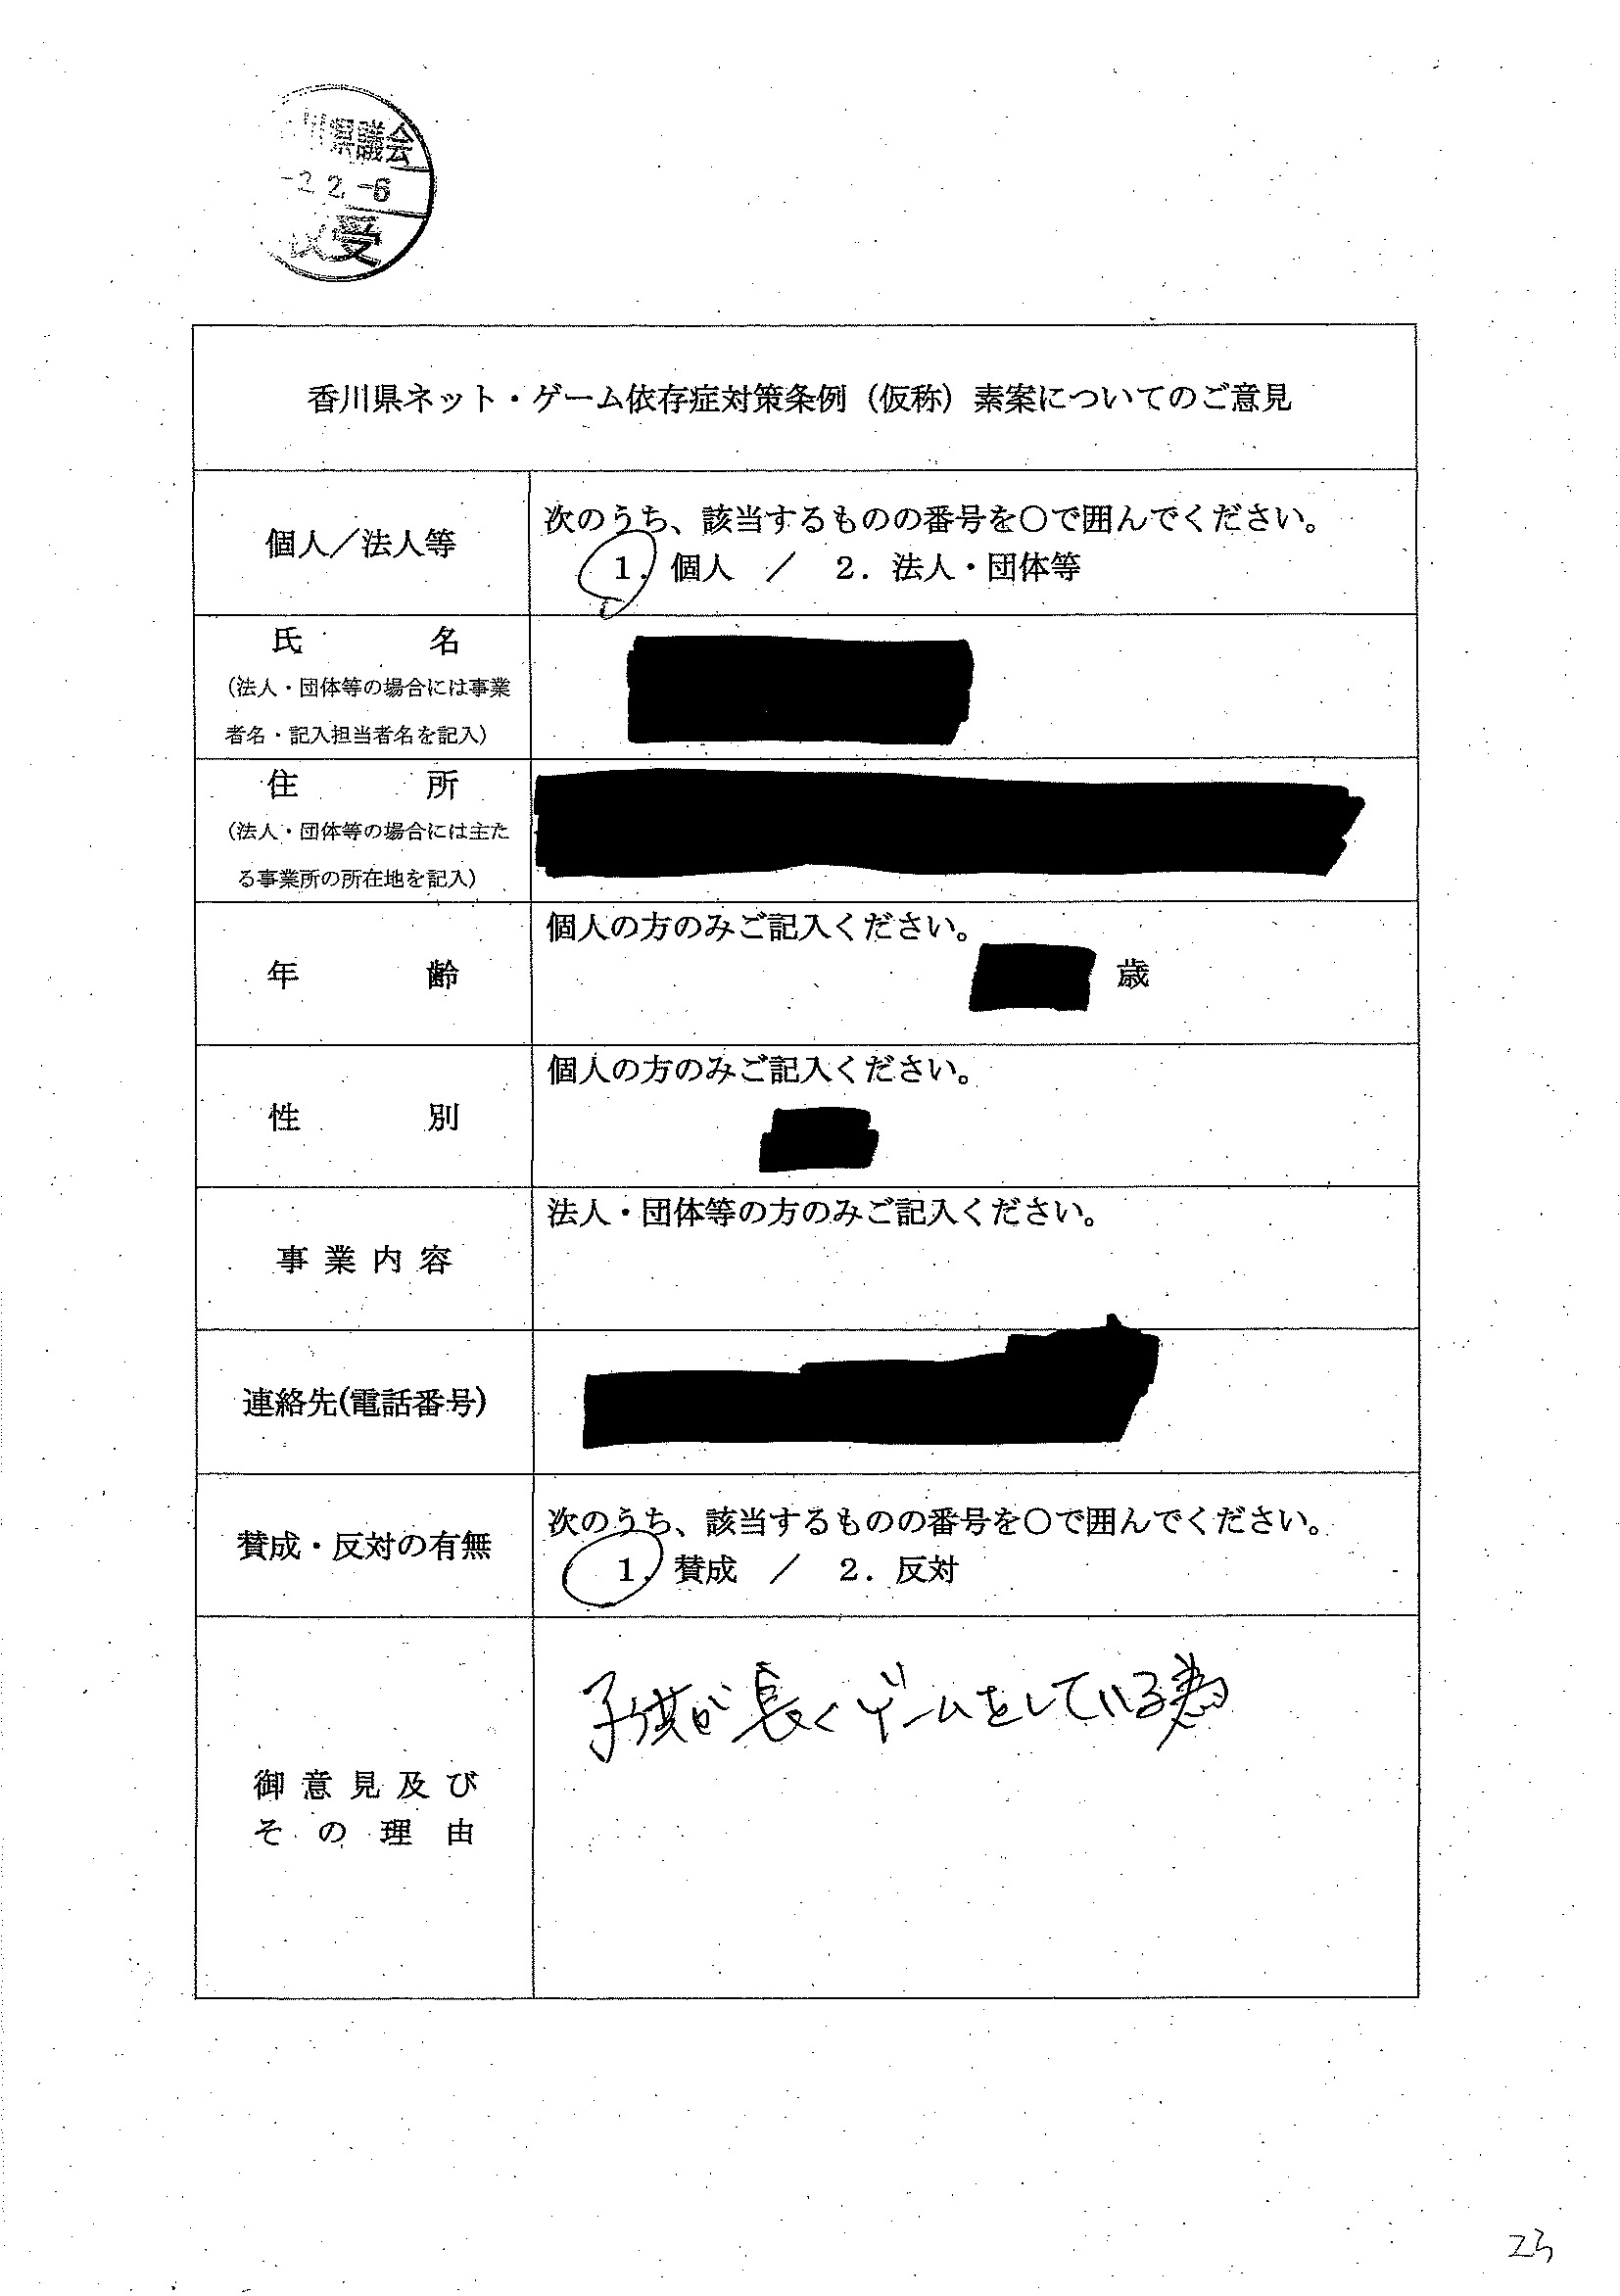 川県議会
-2 2.-6
受
香川県ネット・ゲーム依存症対策条例（仮称）素案についてのご意見
個人／法人等
次のうち、該当するものの番号を○で囲んでください。
1. 個人 ／ 2. 法人・団体等
氏 名
（法人・団体等の場合には事業
者名・記入担当者名を記入）
住 所
（法人・団体等の場合には主た
る事業所の所在地を記入）
年 齢
個人の方のみご記入ください。
歳
性 別
個人の方のみご記入ください。
事 業 内 容
法人・団体等の方のみご記入ください。
連絡先(電話番号)
賛成・反対の有無
次のうち、該当するものの番号を○で囲んでください。
1. 賛成 ／ 2. 反対
御 意 見 及 び
そ の 理 由
子供が長くゲームをしている為
23